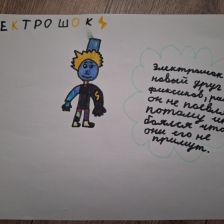 ЕКТРОШОК
Электрошок
новый друг
фиксиков, ра
он не появля
потому ш
боялся что
они его не
примут.